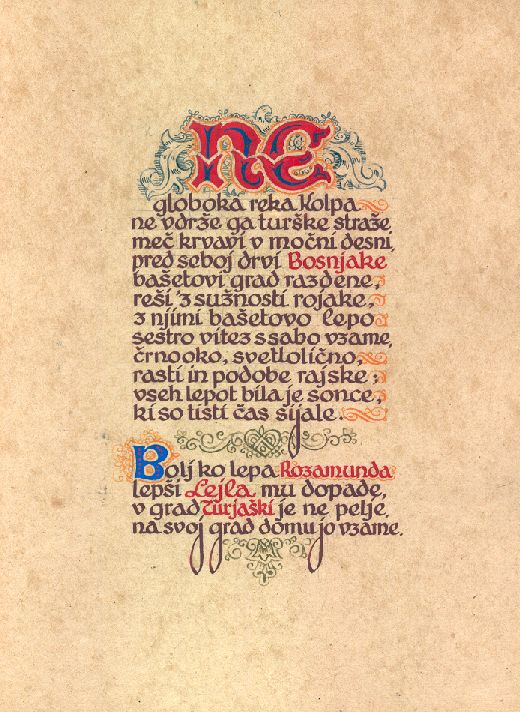 NE
globoka reka Kolpa
ne vdrže ga turške straže,
meč krvavi v močni desni,
pred seboj drvi Bosnjake
bašetovi grad razdene,
reši 'z sužnosti rojake,
z njimi bašetovo lepo
sestro vitez s sabo vzame,
črnooko, svetlolično,
rasti in podobe rajske;
vseh lepot bila je sonce,
ki so tisti čas sijale.
Bolj ko lepa Rozamunda
lepši Lejla mu dopade,
v grad Turjaški je ne pelje,
na svoj grad dómu jo vzame.